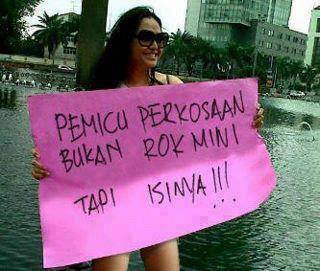 PEMICU PERKOSAAN
BUKAN ROK MINI
TAPI ISINYA!!!